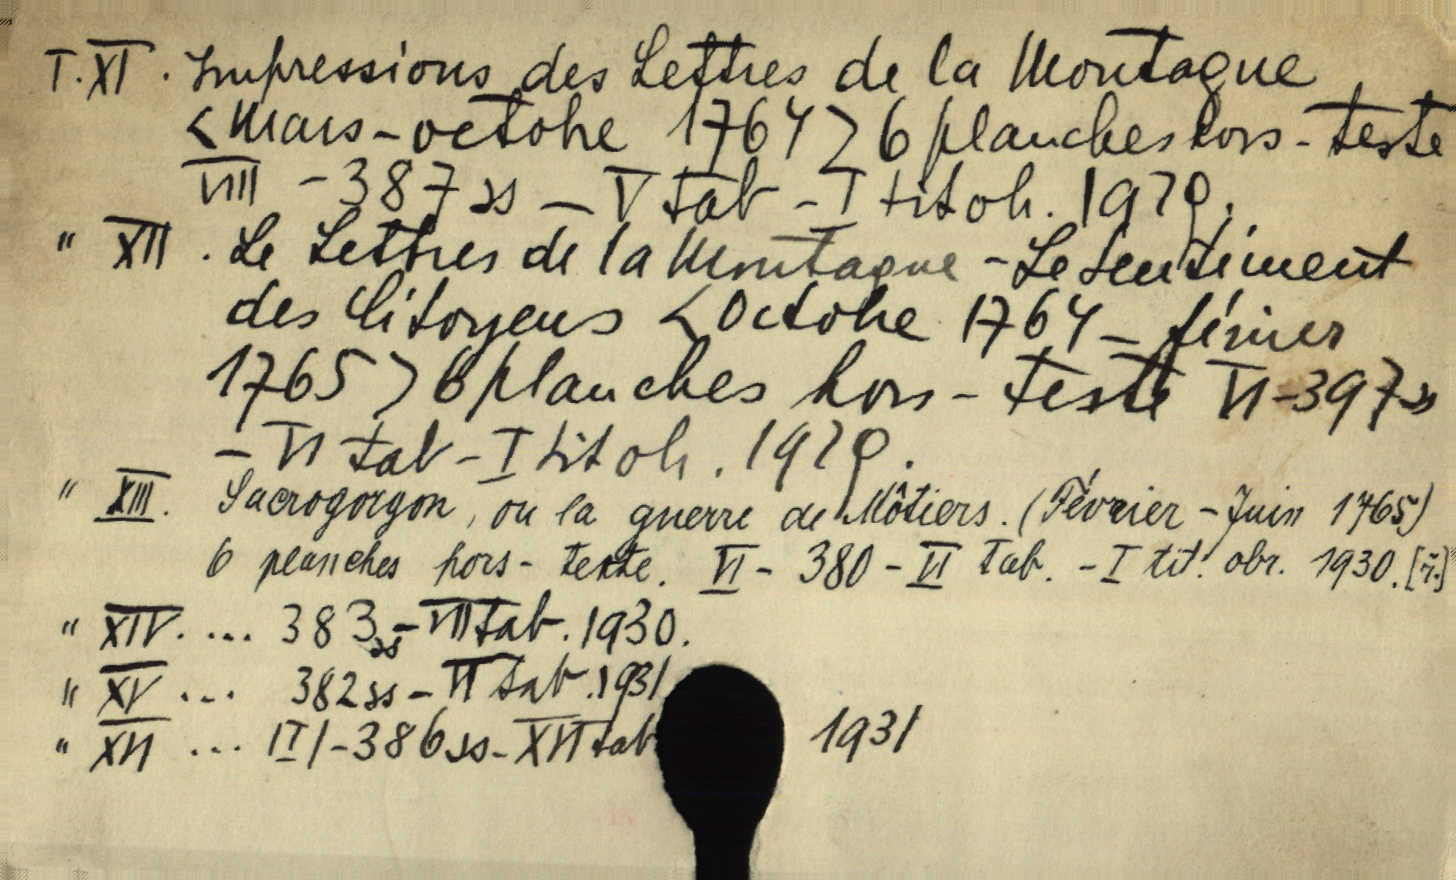 T. XI. Impressions des Lettres de la Montagne
<Mars-octobre 1764> 6 planches hors-texte
VIII - 387 ss - V tab - I tit ob. 1929.
" XII. Le Lettres de la Montagne - Le Sentiment
des Citoyens <Octobre 1764 - février
1765> 6 planches hors-texte VI-397 ss
- VI tab - I tit ob. 1929.
" XIII. Sacrogorgon, ou la guerre de Môtiers. (Février - Juin 1765)
6 planches hors-texte. VI - 380 - VI tab. - I tit. obr. 1930. [ř.]
" XIV. ... 383 ss - VII tab. 1930.
" XV ... 382 ss - VI tab. 1931
" XVI ... |I| - 386 ss - XVI tab 1931